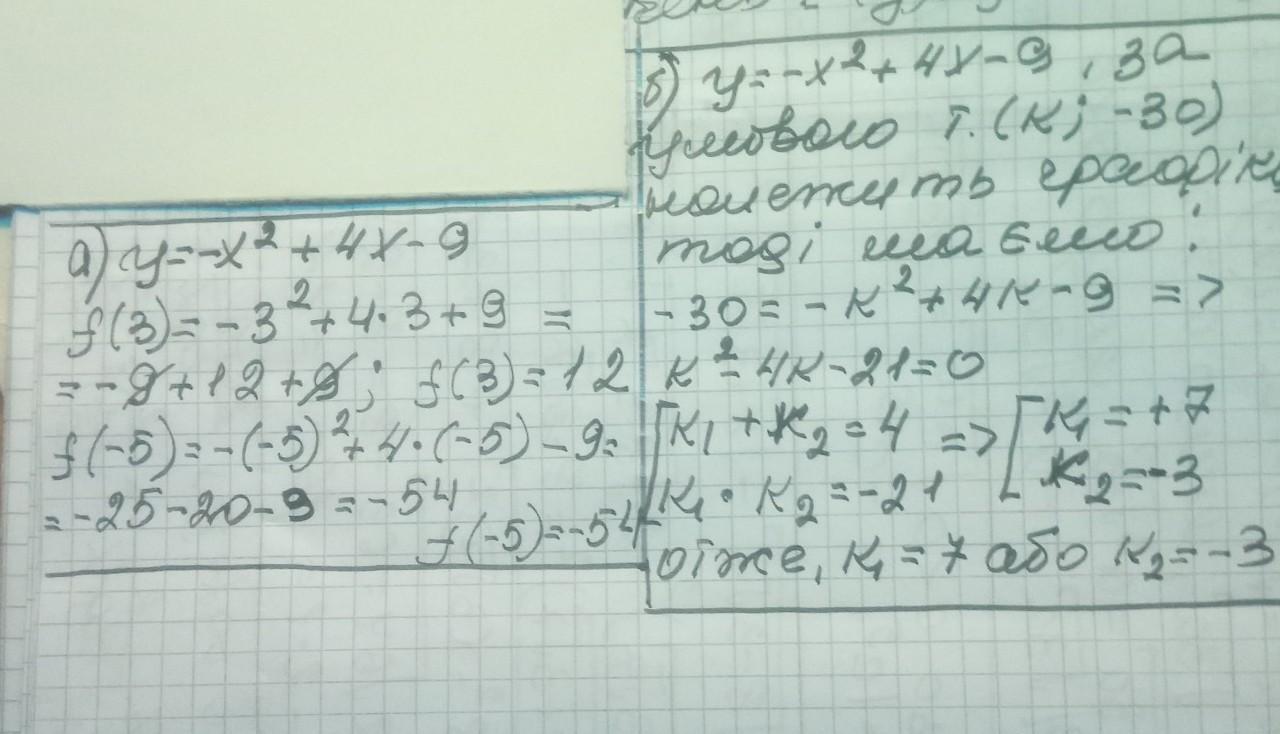 а) y=-x²+4x-9
f(3)=-3²+4·3+9=
=-9+12+9; f(3)=12
f(-5)=-(-5)²+4·(-5)-9=
=-25-20-9=-54
f(-5)=-54
б) y=-x²+4x-9, за
умовою т.(к; -30)
належить графіку
тоді маємо:
-30=-к²+4к-9 =>
к²-4к-21=0
[к₁+к₂=4 => [к₁=+7
к₁·к₂=-21 к₂=-3
отже, к₁=7 або к₂=-3